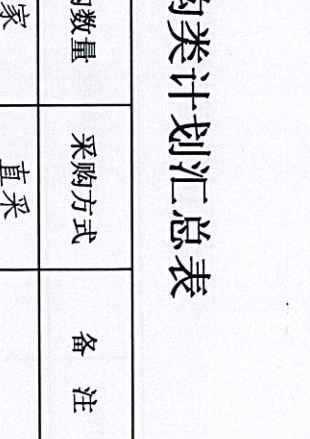 类计划汇总表
数量 采购方式 备 注
家 直采